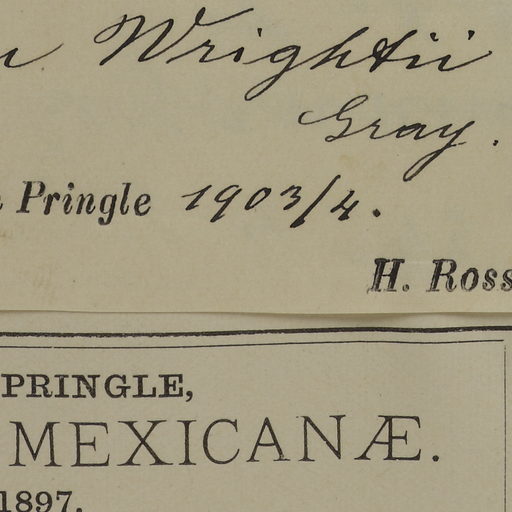 Wrightii
Gray.
Pringle 1903/4.
H. Ross
PRINGLE,
MEXICANÆ.
1897.